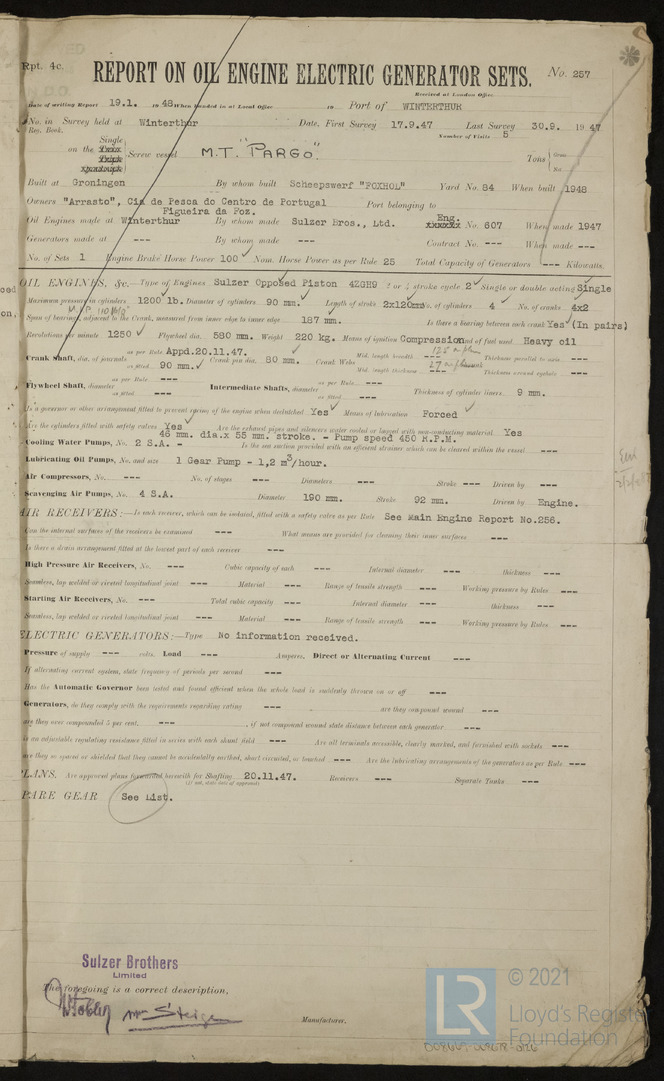 Rpt. 4c. REPORT ON OIL ENGINE ELECTRIC GENERATOR SETS. No. 257
Received at London Office
Date of writing Report 19.1. 19 48 When handed in at Local Office 19 Port of WINTERTHUR
No. in Survey held at Winterthur Date, First Survey 17.9.47 Last Survey 30.9. 1947
Reg. Book. Number of Visits 5
Single
on the Screw vessel M.T. "PARGO". Tons
Built at Groningen By whom built Scheepswerf "FOXHOL" Yard No. 84 When built 1948
Owners "Arrasto", Cia de Pesca do Centro de Portugal Port belonging to
Figueira da Foz.
Oil Engines made at Winterthur By whom made Sulzer Bros., Ltd. Eng. No. 607 When made 1947
Generators made at --- By whom made --- Contract No. --- When made ---
No. of Sets 1 Engine Brake Horse Power 100 Nom. Horse Power as per Rule 25 Total Capacity of Generators --- Kilowatts.
OIL ENGINES, &c.—Type of Engines Sulzer Opposed Piston 4ZGH9 2 or 4 stroke cycle 2 Single or double acting Single
Maximum pressure in cylinders 1200 lb. Diameter of cylinders 90 mm. Length of stroke 2x120mm No. of cylinders 4 No. of cranks 4x2
Span of bearings, adjacent to the Crank, measured from inner edge to inner edge 187 mm. Is there a bearing between each crank Yes (In pairs)
Revolutions per minute 1250 Flywheel dia. 580 mm. Weight 220 kg. Means of ignition Compression Kind of fuel used Heavy oil
Crank Shaft, dia. of journals as per Rule Appd.20.11.47. as fitted 90 mm. Crank pin dia. 80 mm. Crank Webs Mid. length breadth --- Thickness parallel to axis ---
Mid. length thickness --- Thickness around eyehole ---
Flywheel Shaft, diameter as per Rule --- as fitted --- Intermediate Shafts, diameter as per Rule --- as fitted --- Thickness of cylinder liners 9 mm.
Is a governor or other arrangement fitted to prevent racing of the engine when declutched Yes Means of lubrication Forced
Are the cylinders fitted with safety valves Yes Are the exhaust pipes and silencers water cooled or lagged with non-conducting material Yes
46 mm. dia.x 55 mm. stroke. - Pump speed 450 R.P.M.
Cooling Water Pumps, No. 2 S.A. - Is the sea suction provided with an efficient strainer which can be cleared within the vessel ---
Lubricating Oil Pumps, No. and size 1 Gear Pump - 1,2 m³/hour.
Air Compressors, No. --- No. of stages --- Diameters --- Stroke --- Driven by ---
Scavenging Air Pumps, No. 4 S.A. Diameter 190 mm. Stroke 92 mm. Driven by Engine.
AIR RECEIVERS:—Is each receiver, which can be isolated, fitted with a safety valve as per Rule See Main Engine Report No.256.
Can the internal surfaces of the receivers be examined --- What means are provided for cleaning their inner surfaces ---
Is there a drain arrangement fitted at the lowest part of each receiver ---
High Pressure Air Receivers, No. --- Cubic capacity of each --- Internal diameter --- thickness ---
Seamless, lap welded or riveted longitudinal joint --- Material --- Range of tensile strength --- Working pressure by Rules ---
Starting Air Receivers, No. --- Total cubic capacity --- Internal diameter --- thickness ---
Seamless, lap welded or riveted longitudinal joint --- Material --- Range of tensile strength --- Working pressure by Rules ---
ELECTRIC GENERATORS:—Type No information received.
Pressure of supply --- volts. Load --- Amperes. Direct or Alternating Current ---
If alternating current system, state frequency of periods per second ---
Has the Automatic Governor been tested and found efficient when the whole load is suddenly thrown on or off ---
Generators, do they comply with the requirements regarding rating --- are they compound wound ---
are they over compounded 5 per cent. --- , if not compound wound state distance between each generator ---
is an adjustable regulating resistance fitted in series with each shunt field --- Are all terminals accessible, clearly marked, and furnished with sockets ---
are they so spaced or shielded that they cannot be accidentally earthed, short circuited, or touched --- Are the lubricating arrangements of the generators as per Rule ---
PLANS. Are approved plans forwarded herewith for Shafting 20.11.47. Receivers --- Separate Tanks ---
(If not, state date of approval)
SPARE GEAR See List.
Sulzer Brothers
Limited
The foregoing is a correct description,
Manufacturer.
LR © 2021
Lloyd's Register
Foundation